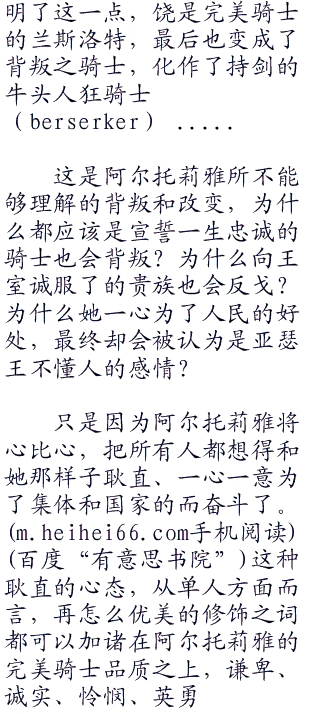 明了这一点，饶是完美骑士
的兰斯洛特，最后也变成了
背叛之骑士，化作了持剑的
牛头人狂骑士
（berserker） .....
这是阿尔托莉雅所不能
够理解的背叛和改变，为什
么都应该是宣誓一生忠诚的
骑士也会背叛？为什么向王
室诚服了的贵族也会反戈？
为什么她一心为了人民的好
处，最终却会被认为是亚瑟
王不懂人的感情？
只是因为阿尔托莉雅将
心比心，把所有人都想得和
她那样子耿直、一心一意为
了集体和国家的而奋斗了。
(m.heihei66.com手机阅读)
(百度“有意思书院”)这种
耿直的心态，从单人方面而
言，再怎么优美的修饰之词
都可以加诸在阿尔托莉雅的
完美骑士品质之上，谦卑、
诚实、怜悯、英勇